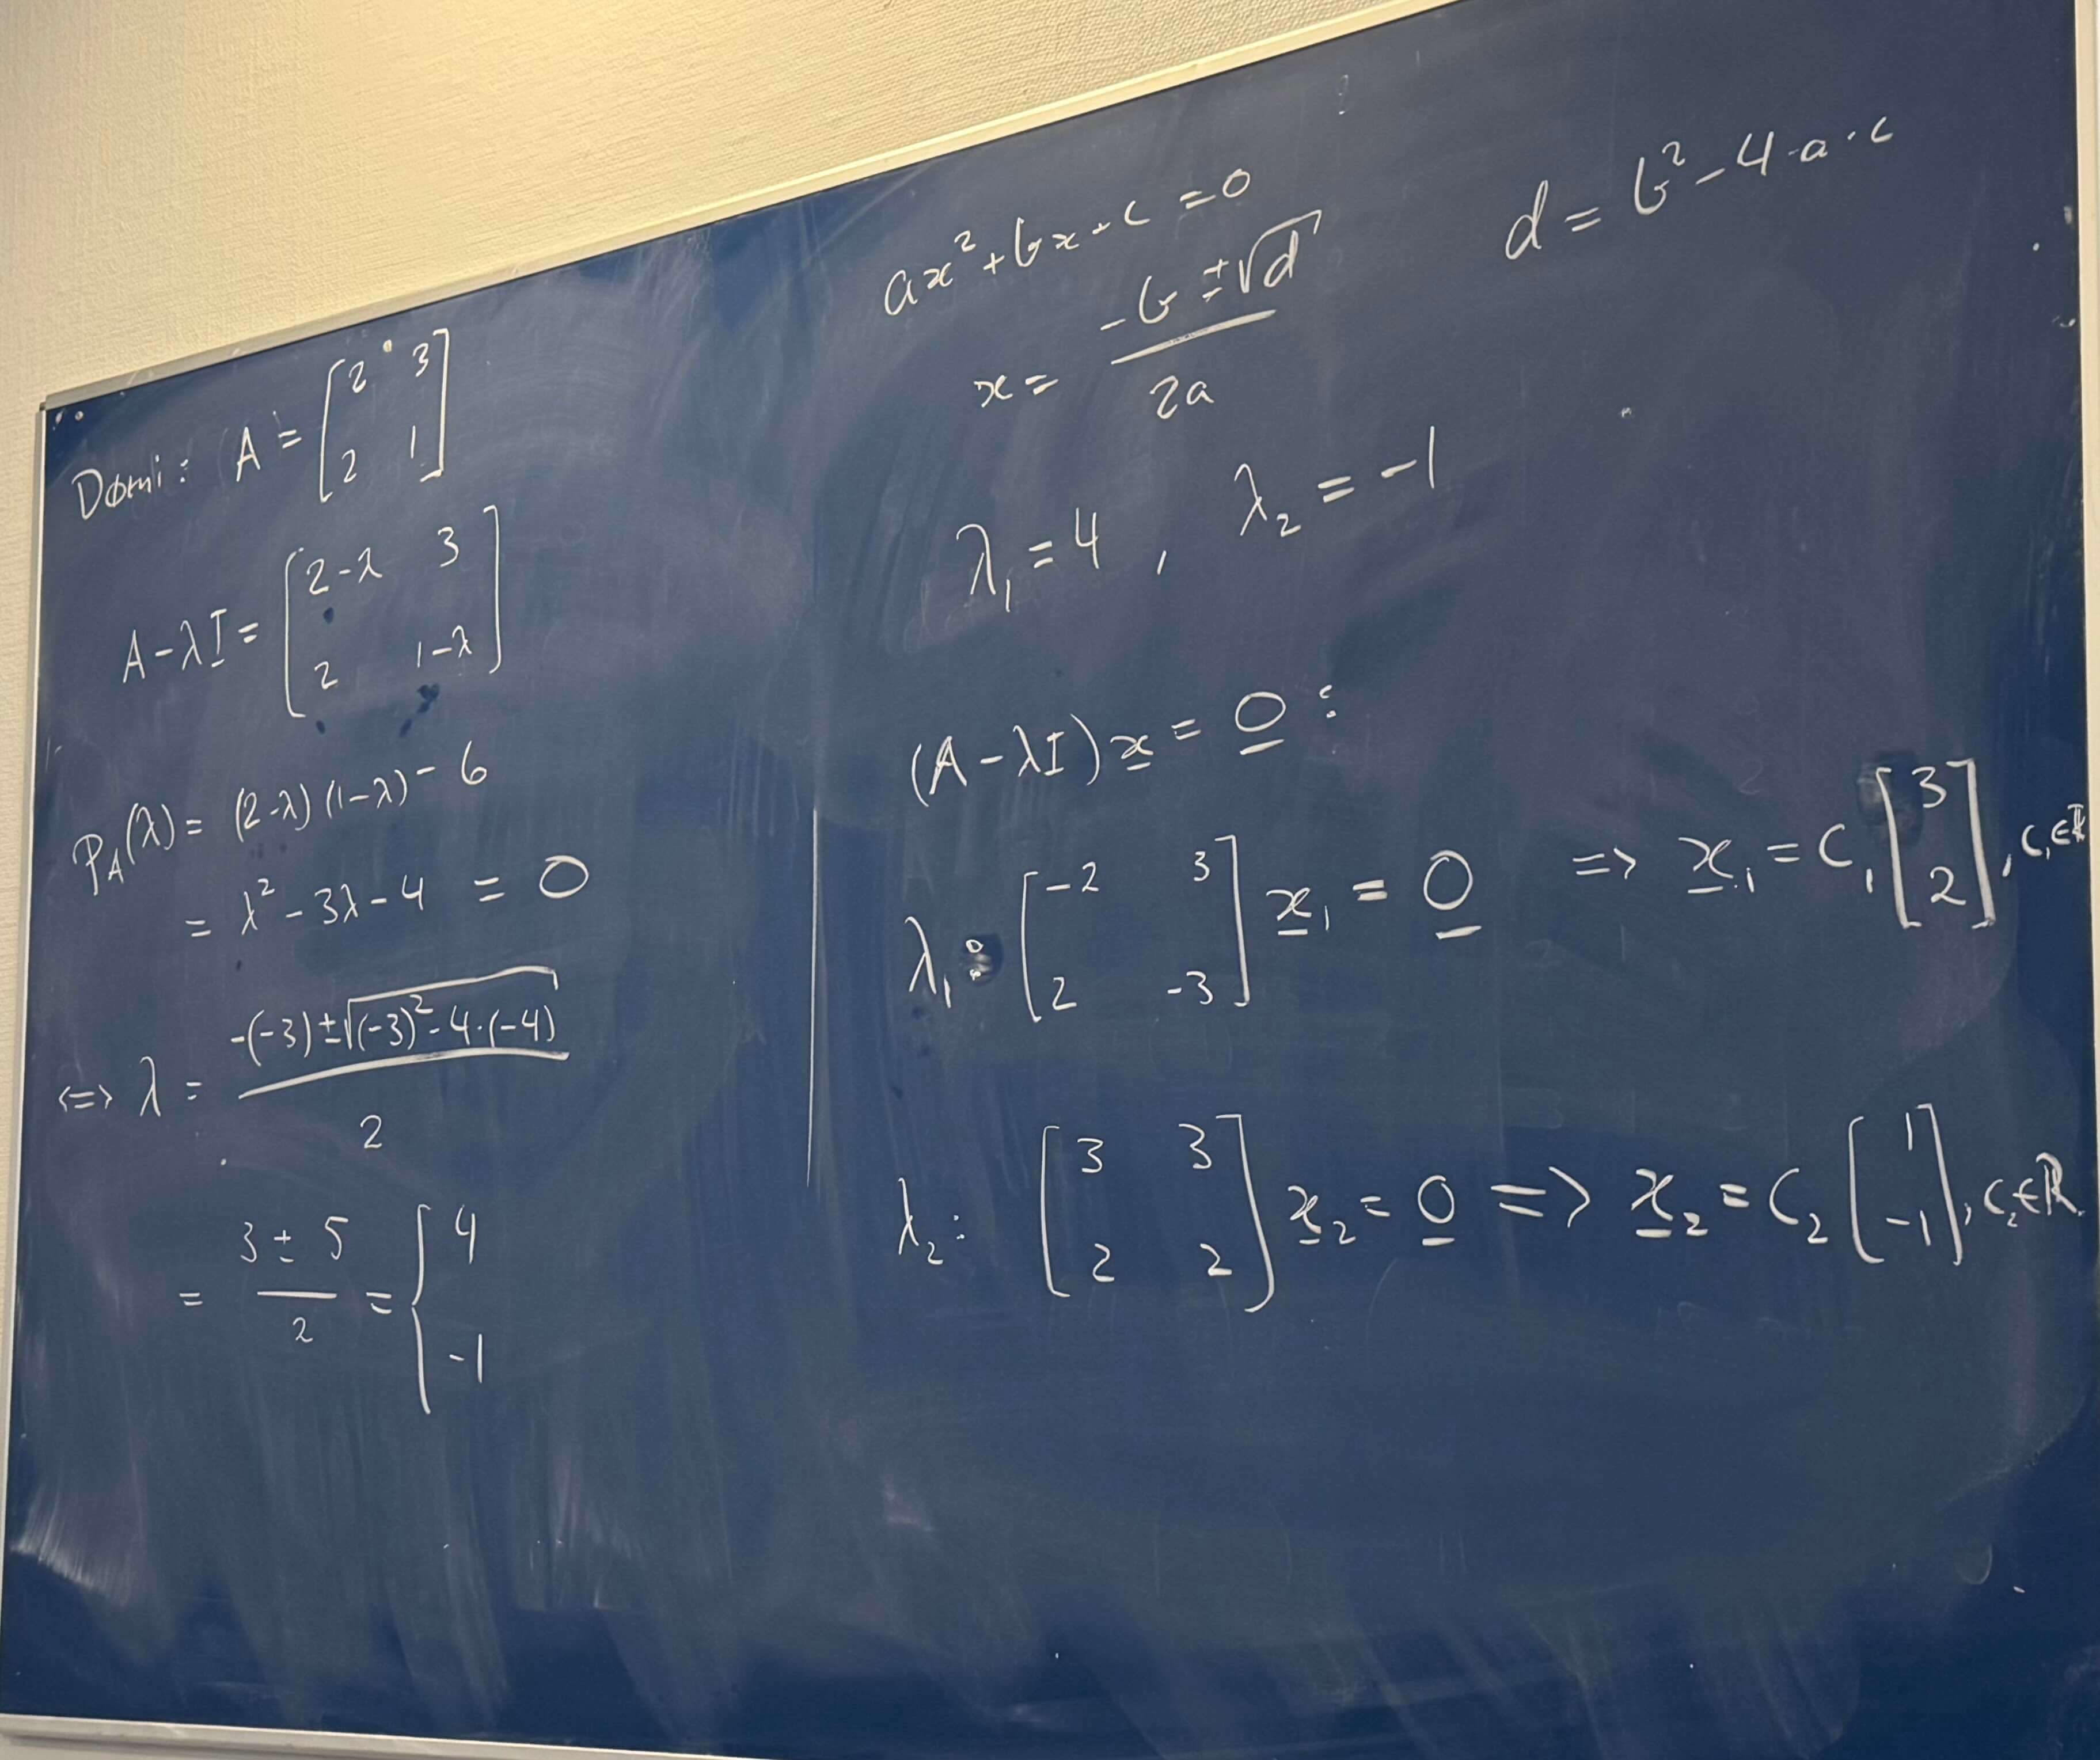 Dømi: A = [2 3; 2 1]
A-λI = [2-λ 3; 2 1-λ]
P_A(λ) = (2-λ)(1-λ) - 6
= λ² - 3λ - 4 = 0
<=> λ = (-(-3) ± √((-3)² - 4·(-4))) / 2
= (3 ± 5) / 2 = { 4; -1
ax² + bx + c = 0
d = b² - 4·a·c
x = (-b ± √d) / 2a
λ₁ = 4 , λ₂ = -1
(A - λI) x = 0 :
λ₁: [-2 3; 2 -3] x₁ = 0 => x₁ = c₁ [3; 2], c₁∈ℝ
λ₂: [3 3; 2 2] x₂ = 0 => x₂ = c₂ [1; -1], c₂∈ℝ